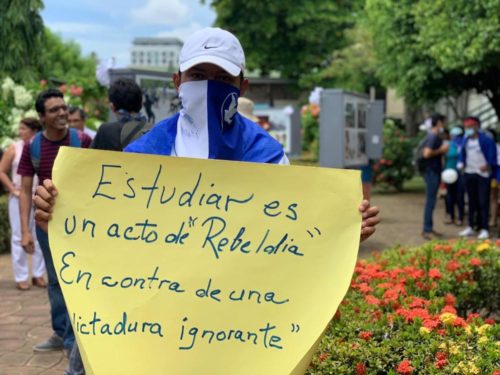 Estudiar es
un acto de "Rebeldia"
En contra de una
dictadura ignorante"